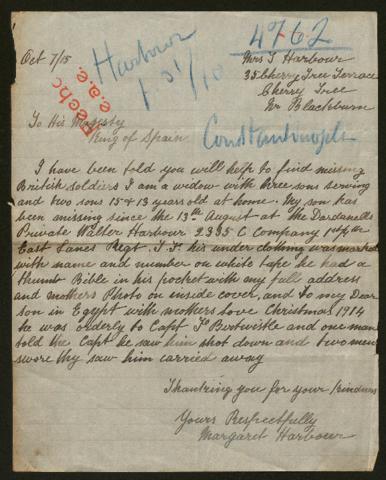 4762
Oct 7/15
Harbour
Mrs T Harbour
35 Cherry Tree Terrace
Cherry Tree
Nr Blackburn
To His Majesty
King of Spain
Constantinople
I have been told you will help to find missing
British soldiers I am a widow with three sons serving
and two sons 15 & 13 years old at home. My son has
been missing since the 13th August at the Dardanelles
Private Walter Harbour 2335 C Company
East Lancs Regt. I.D. his under clothing was marked
with name and number on white tape he had a
thumb Bible in his pocket with my full address
and mothers Photo on inside cover, and to my Dear
son in Egypt with mothers love Christmas 1914
he was orderly to Capt Birtwistle and one man
told the Capt he saw him shot down and two men
swore they saw him carried away
Thanking you for your kindness
Yours Respectfully
Margaret Harbour